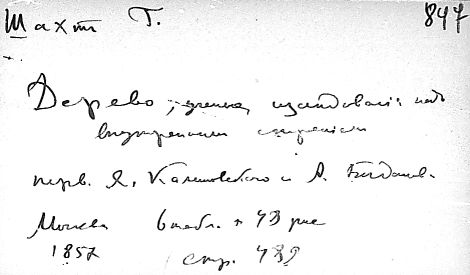 Шахт Г. 847
Дерево; ученья, изследован: надъ
внутреннимъ строеніемъ
перв. Я. Калиновского и А. Богданов.
Москва 6 табл. + 43 рис
1857 стр. 439